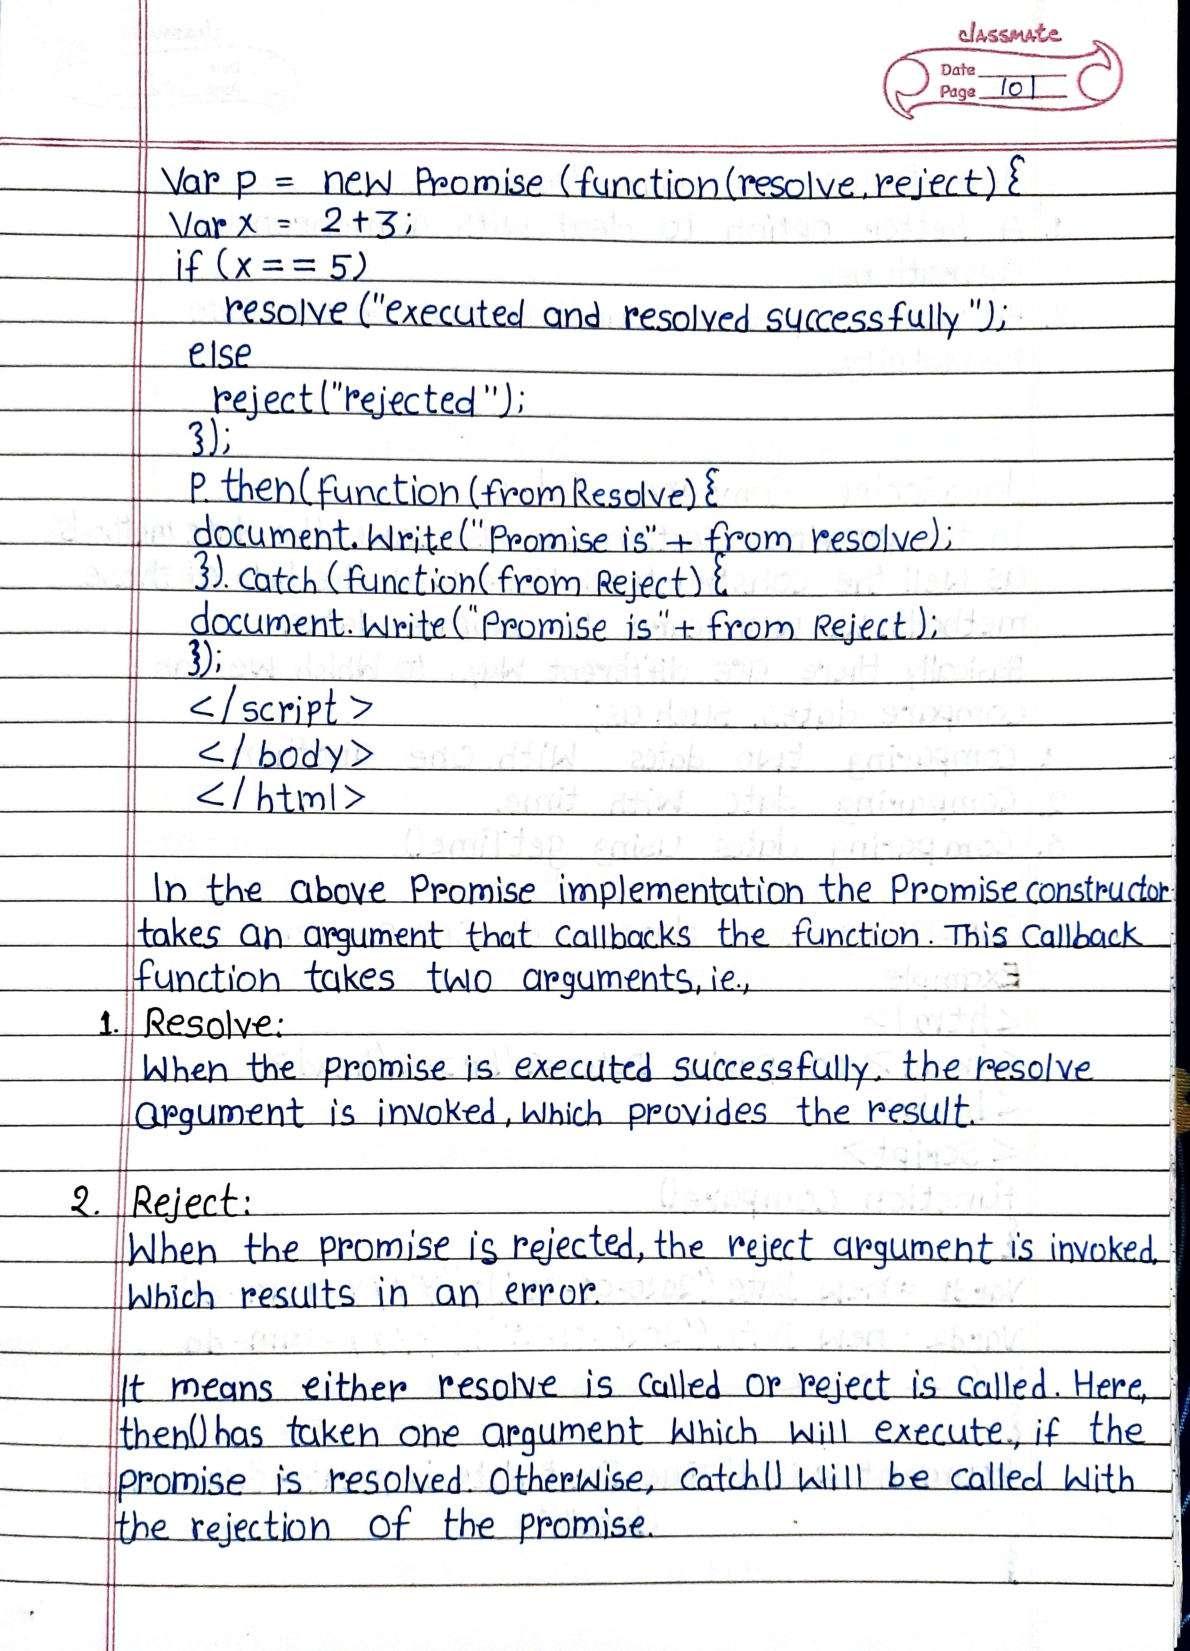 classmate
Date
Page 101
Var p = new Promise (function(resolve, reject) {
Var x = 2+3;
if (x == 5)
resolve ("executed and resolved successfully");
else
reject("rejected");
});
P. then(function(fromResolve) {
document.Write("Promise is" + from resolve);
}). catch (function(from Reject) {
document. Write ("Promise is" + from Reject);
});
</script>
</body>
</html>
In the above Promise implementation the Promise constructor
takes an argument that callbacks the function. This Callback
function takes two arguments, ie.,
1. Resolve:
When the promise is executed successfully, the resolve
argument is invoked, Which provides the result.
2. Reject:
When the promise is rejected, the reject argument is invoked,
Which results in an error.
It means either resolve is called or reject is called. Here,
then() has taken one argument Which Will execute, if the
promise is resolved. Otherwise, catch() Will be called With
the rejection of the promise.